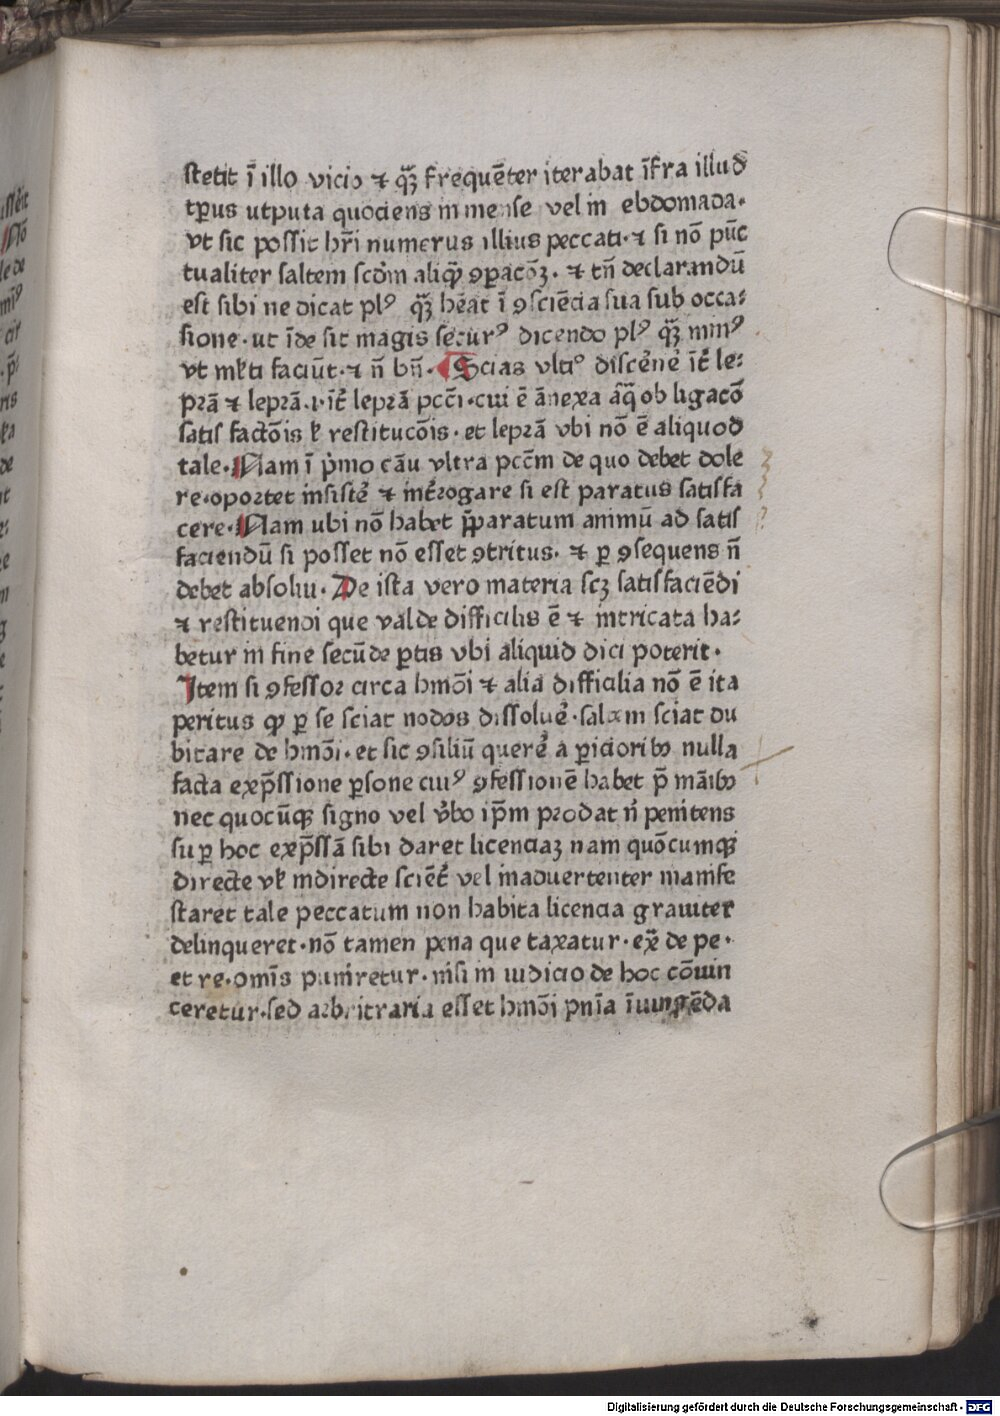 stetit ī illo vicio ⁊ qꝫ̄ frequēter iterabat īfra illud
tꝑus utputa quociens in mense vel in ebdomada·
vt sic possit hr̄i numerus illius peccati·⁊ si nō pūc
tualiter saltem scd̄m aliqͣꝫ ꝯꝑacōꝫ·⁊ tn̄ declarandū
est sibi ne dicat plꝰ qꝫ̄ hēat ī ꝯsciēcia sua sub occa⸗
sione·ut īde sit magis securꝰ dicendo plꝰ qꝫ̄ minꝰ
vt ml̓ti faciūt·⁊ n̄ bn̄· Scias vltiº discēne͛ īt͛ le⸗
prā ⁊ leprā·i·īt͛ leprā pcc̄i·cui ē ānexa aq̄ ob ligacō
satisfactōis l̓ restitucōis·et leprā vbi nō ē aliquod
tale·Nam ī pͥmo cāu vltra pccm̄ de quo debet dole
re·oportet insiste͛ ⁊ int͛rogare si est paratus satisfa
cere·Nam ubi nō habet p̄paratum animū ad satis
faciendū si posset nō esset ꝯtritus·⁊ ꝑ ꝯsequens n̄
debet absolui·De ista vero materia scꝫ satisfaciēdi
⁊ restituendi que valde difficilis ē ⁊ intricata ha⸗
betur in fine secūde ꝑtis vbi aliquid dici poterit·
Item si ꝯfessor circa hmōi ⁊ alia difficilia nō ē ita
peritus ꝙ ꝑ se sciat nodos dissolue͛·saltem sciat du
bitare de hmōi·et sic ꝯsiliū quere͛ a ꝑicioribꝰ nulla
facta exp̄ssione ꝑsone cuiꝰ ꝯfessionē habet p̄ māibꝰ
nec quocūqꝫ signo vel v̓bo ip̄m prodat n̓ penitens
suꝑ hoc exp̄ssā sibi daret licenciaꝫ nam quōcumqꝫ
directe vl̓ indirecte scient͛ vel inaduertenter manife
staret tale peccatum non habita licencia grauiter
delinqueret·nō tamen pena que taxatur·ex̄ de pe·
et re·omīs puniretur·nisi in iudicio de hoc cōuin
ceretur·sed arbitraria esset hmōi pn̄ia īiungēda
Digitalisierung gefördert durch die Deutsche Forschungsgemeinschaft · DFG